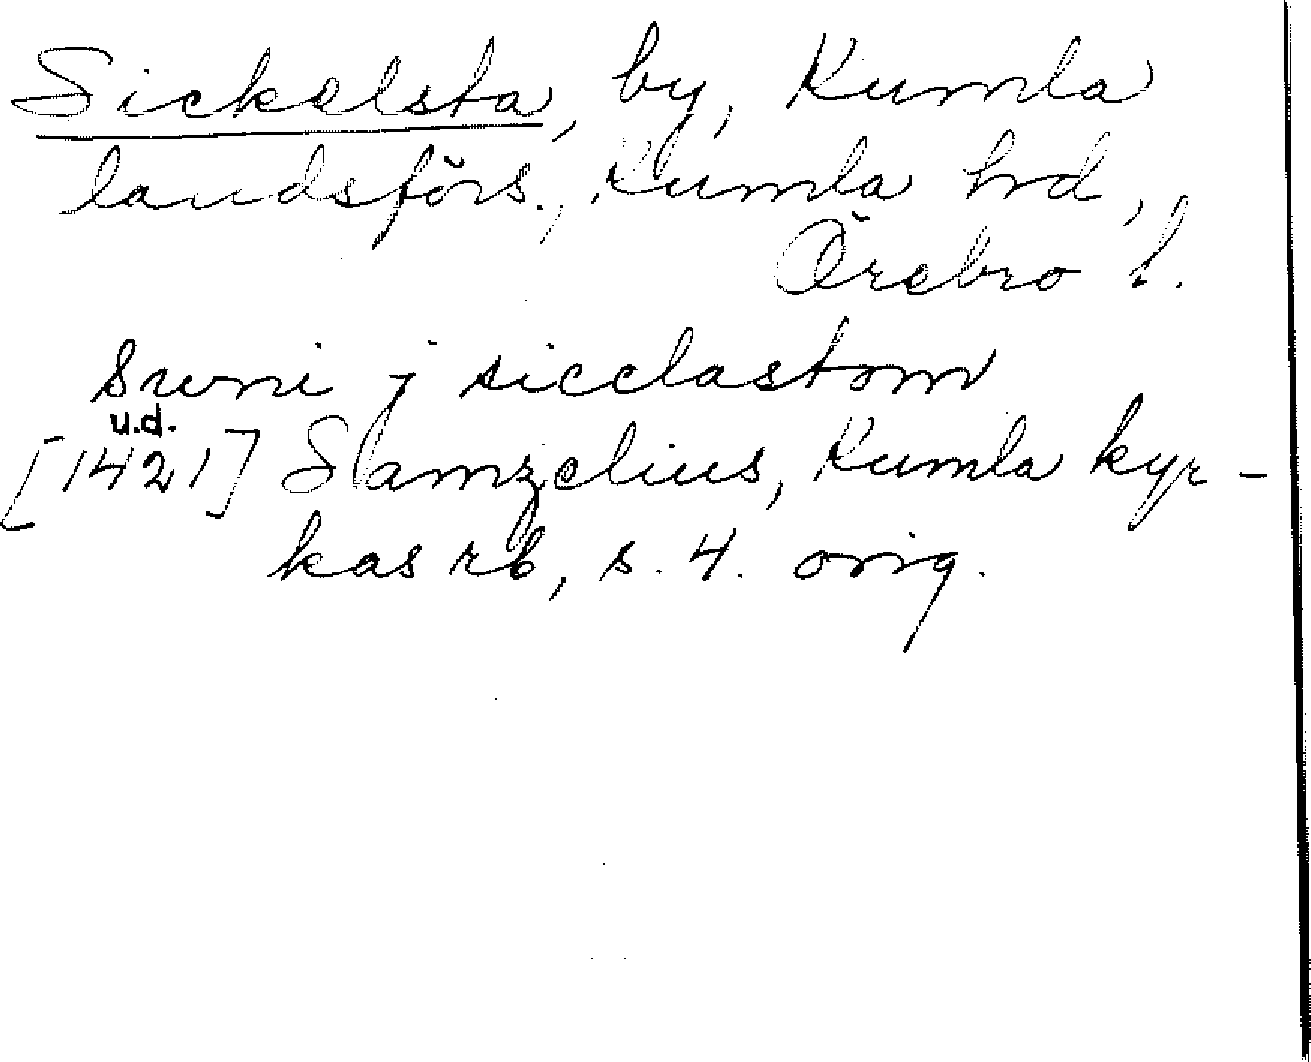 Sickelsta, by, Kumla
landsförs., Kumla hd,
Örebro l.
Sweni j sicclastom
u.d.
[1421] Samzelius, Kumla kyr-
kas rb, s. 4. orig.